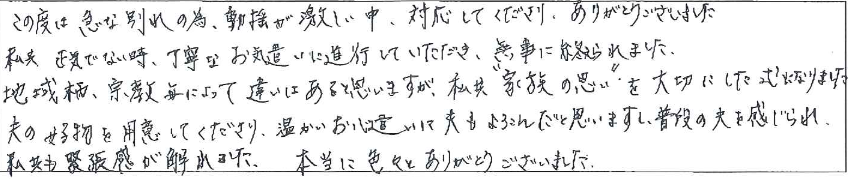 この度は急な別れの為、動揺が激しい中、対応してくださり、ありがとうございました
私共 正気でない時、丁寧なお気遣いに進行していただき、無事に終えられました。
地域柄、宗教毎によって違いはあると思いますが、私共"家族の思い"を大切にした式になりました
夫の好物を用意してくださり、温かいお心遣いに夫もよろこんだと思いますし、普段の夫を感じられ、
私共も緊張感が解れました。 本当に色々とありがとうございました。